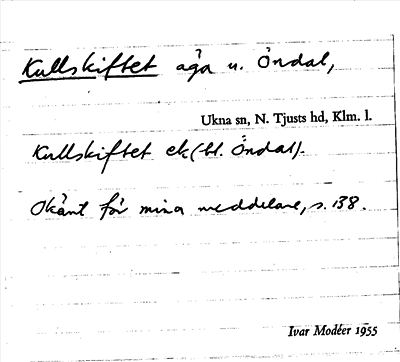 Kullskiftet äga u. Öndal,
Ukna sn, N. Tjusts hd, Klm. l.
Kullskiftet ek (bl. Öndal).
Okänt för mina meddelare, s. 138.
Ivar Modéer 1955